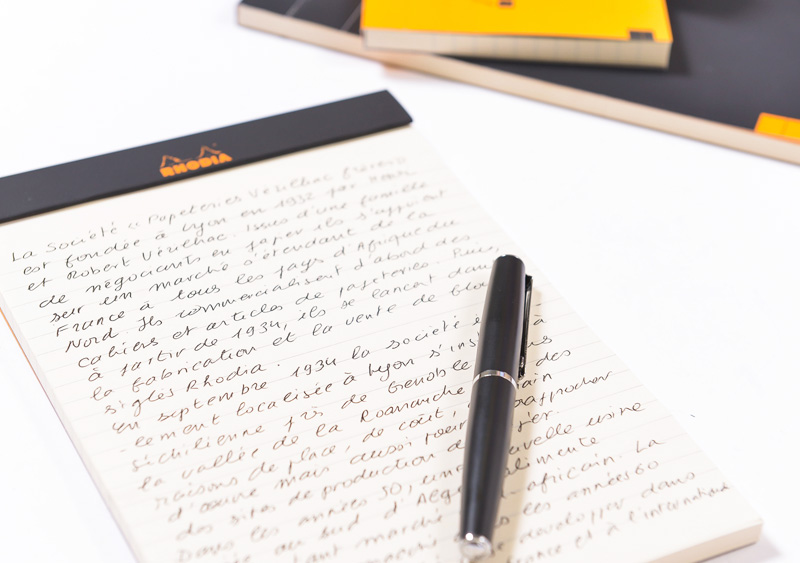 RHODIA
La Société " Papeteries Verilhac frères"
est fondée à Lyon en 1932 par Henri
et Robert Vérilhac. Issus d'une famille
de négociants en papier ils s'appuient
sur un marché s'étendant de la
France à tous les pays d'Afrique du
Nord. Ils commercialisent d'abord des
cahiers et articles de papeteries. Puis,
à partir de 1934, ils se lancent dans
la fabrication et la vente de
siglés Rhodia.
En septembre 1934 la société à
lement localisée à Lyon
séchilienne près de Grenoble
la vallée de la Romanche des
raisons de place, de coût, rapprocher
d'œuvre mais aussi pour
des sites de production nouvelle usine
Dans les années 50,
au sud d'Algé africain. La
tant marché les années 60
développer dans
et à l'international